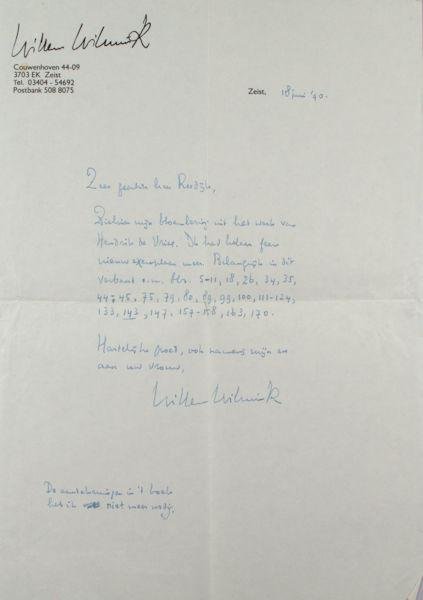 Willem Wilmink
Couwenhoven 44-09
3703 EK Zeist
Tel. 03404 - 54692
Postbank 508 8075
Zeist, 18 juni '90.
Zeer geachte heer Reedijk,
Ziehier mijn bloemlezing uit het werk van
Hendrik de Vries. Ik had helaas geen
nieuw exemplaar meer. Belangrijk in dit
verband o.m. blz. 5-11, 18, 26, 34, 35,
44, 45, 75, 79, 80, 89, 99, 100, 111-124,
133, 143, 147, 157-158, 163, 170.
Hartelijke groet, ook namens mijn en
aan uw vrouw,
Willem Wilmink
De aantekeningen in 't boek
heb ik niet meer nodig.